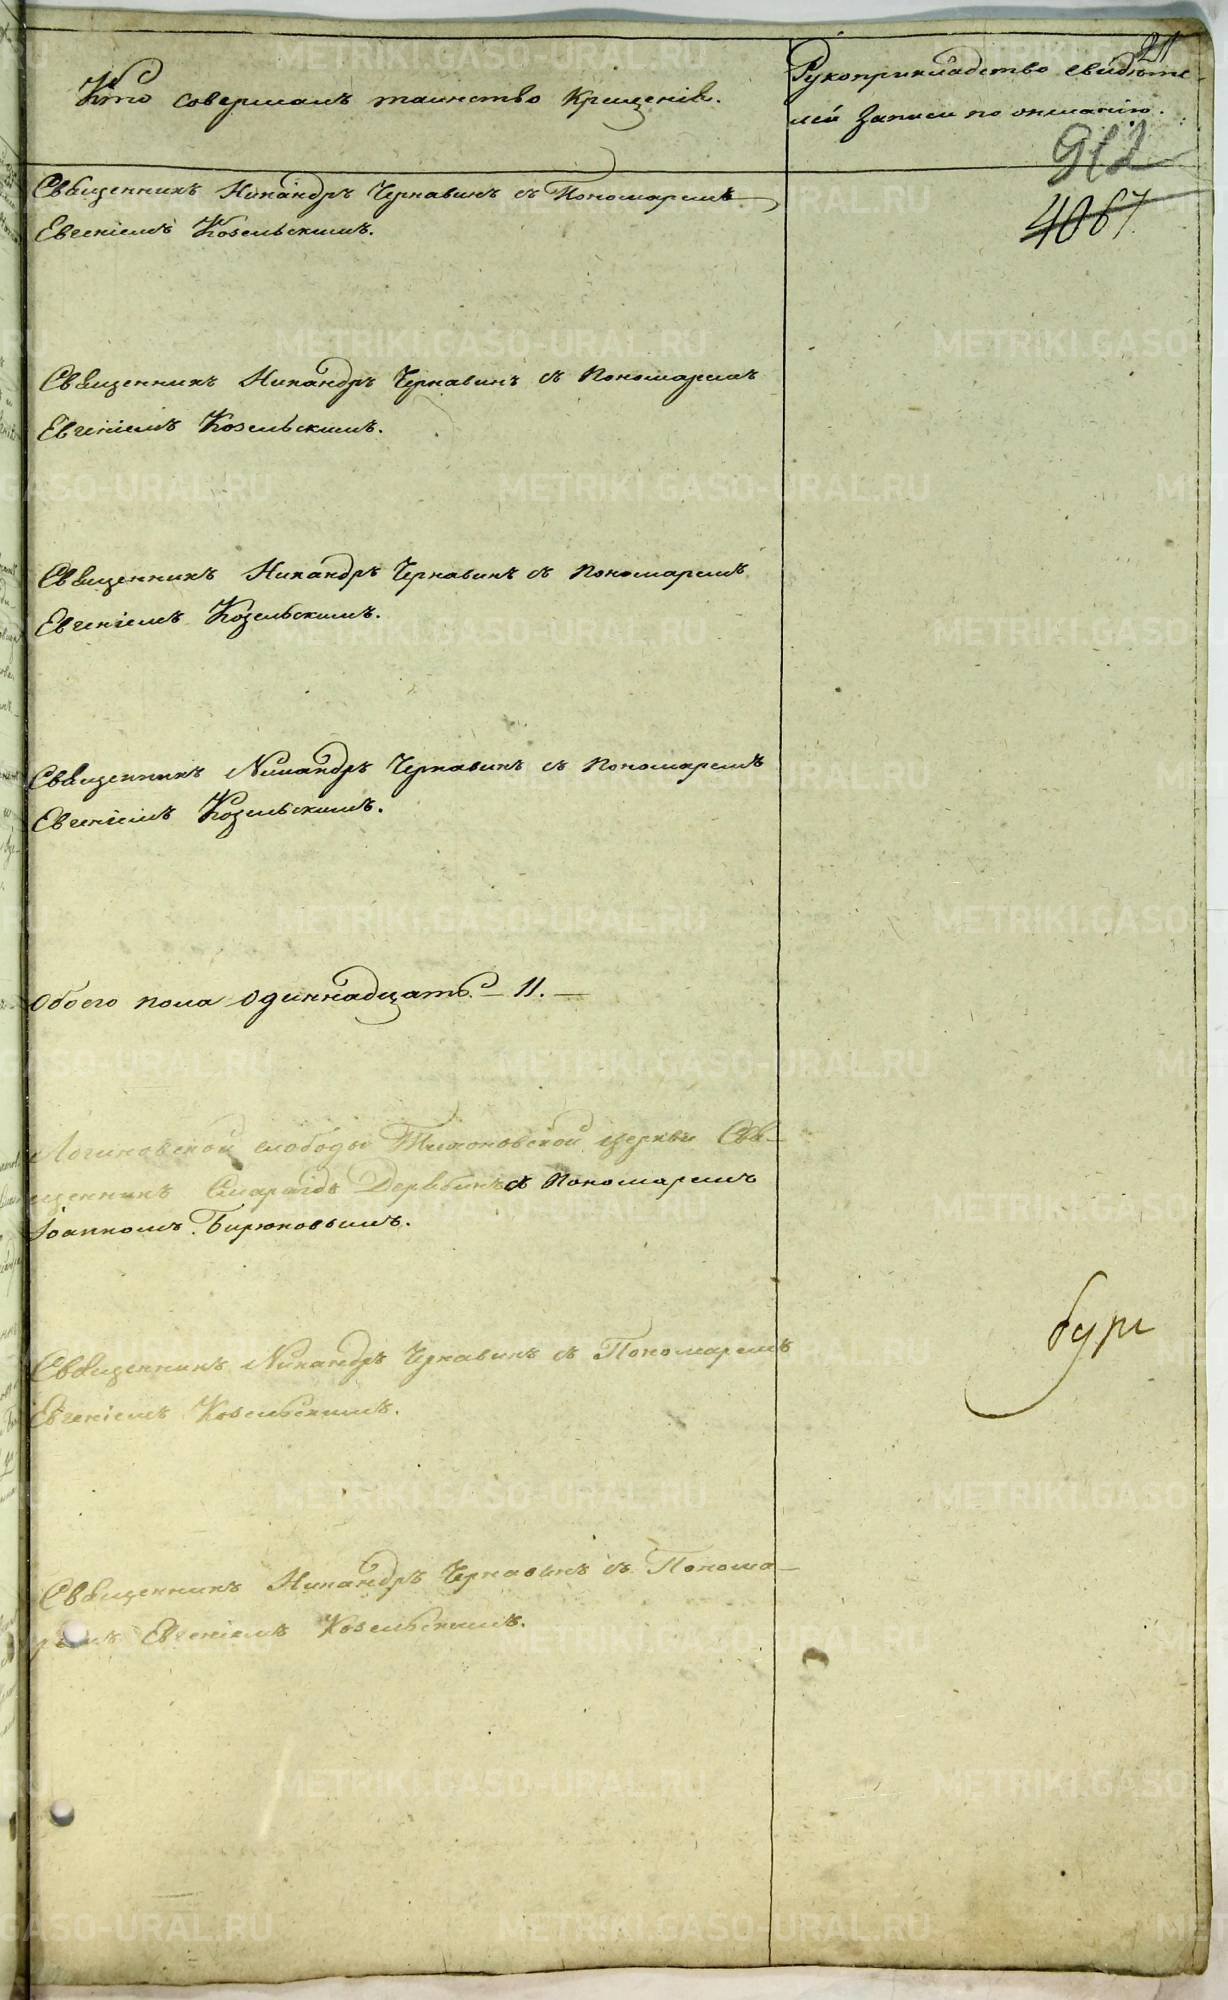 21
Кто совершалъ таинство Крещенія.
Рукоприкладство свидѣте-
лей записи по желанію.
912
4067
Священникъ Никандръ Чернавинъ съ Пономаремъ
Евгеніемъ Козельскимъ.
Священникъ Никандръ Чернавинъ съ Пономаремъ
Евгеніемъ Козельскимъ.
Священникъ Никандръ Чернавинъ съ Пономаремъ
Евгеніемъ Козельскимъ.
Священникъ Никандръ Чернавинъ съ Пономаремъ
Евгеніемъ Козельскимъ.
Обоего пола одиннадцать. – 11. –
Логиновской слободы Тихоновской церкви Свя-
щенникъ Смарагдъ Дерябинъ съ Пономаремъ
Іоанномъ Бирюковымъ.
Священникъ Никандръ Чернавинъ съ Пономаремъ
Евгеніемъ Козельскимъ.
Священникъ Никандръ Чернавинъ съ Понома-
ремъ Евгеніемъ Козельскимъ.
METRIKI.GASO-URAL.RU